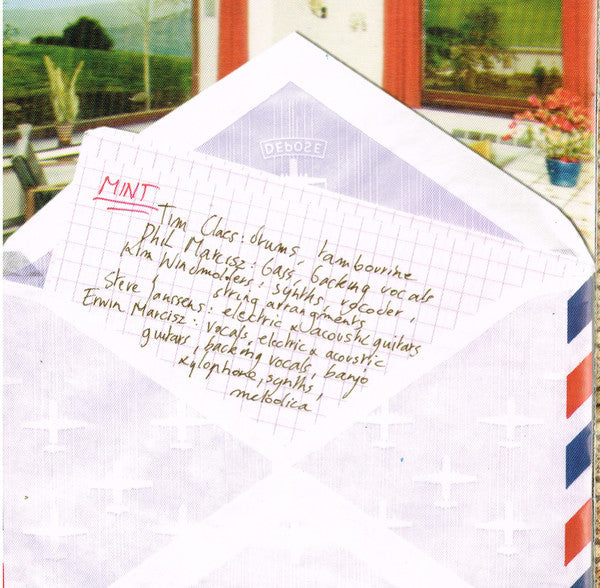 DEbOSE
MINT
Tim Claes: drums, tambourine
Phil Marcisz: bass, backing vocals
Kim Windmolders: synths, vocoder,
string arrangments
Steve Janssens: electric & acoustic guitars
Erwin Marcisz: vocals, electric & acoustic
guitars, backing vocals, banjo
xylophone, synths,
melodica